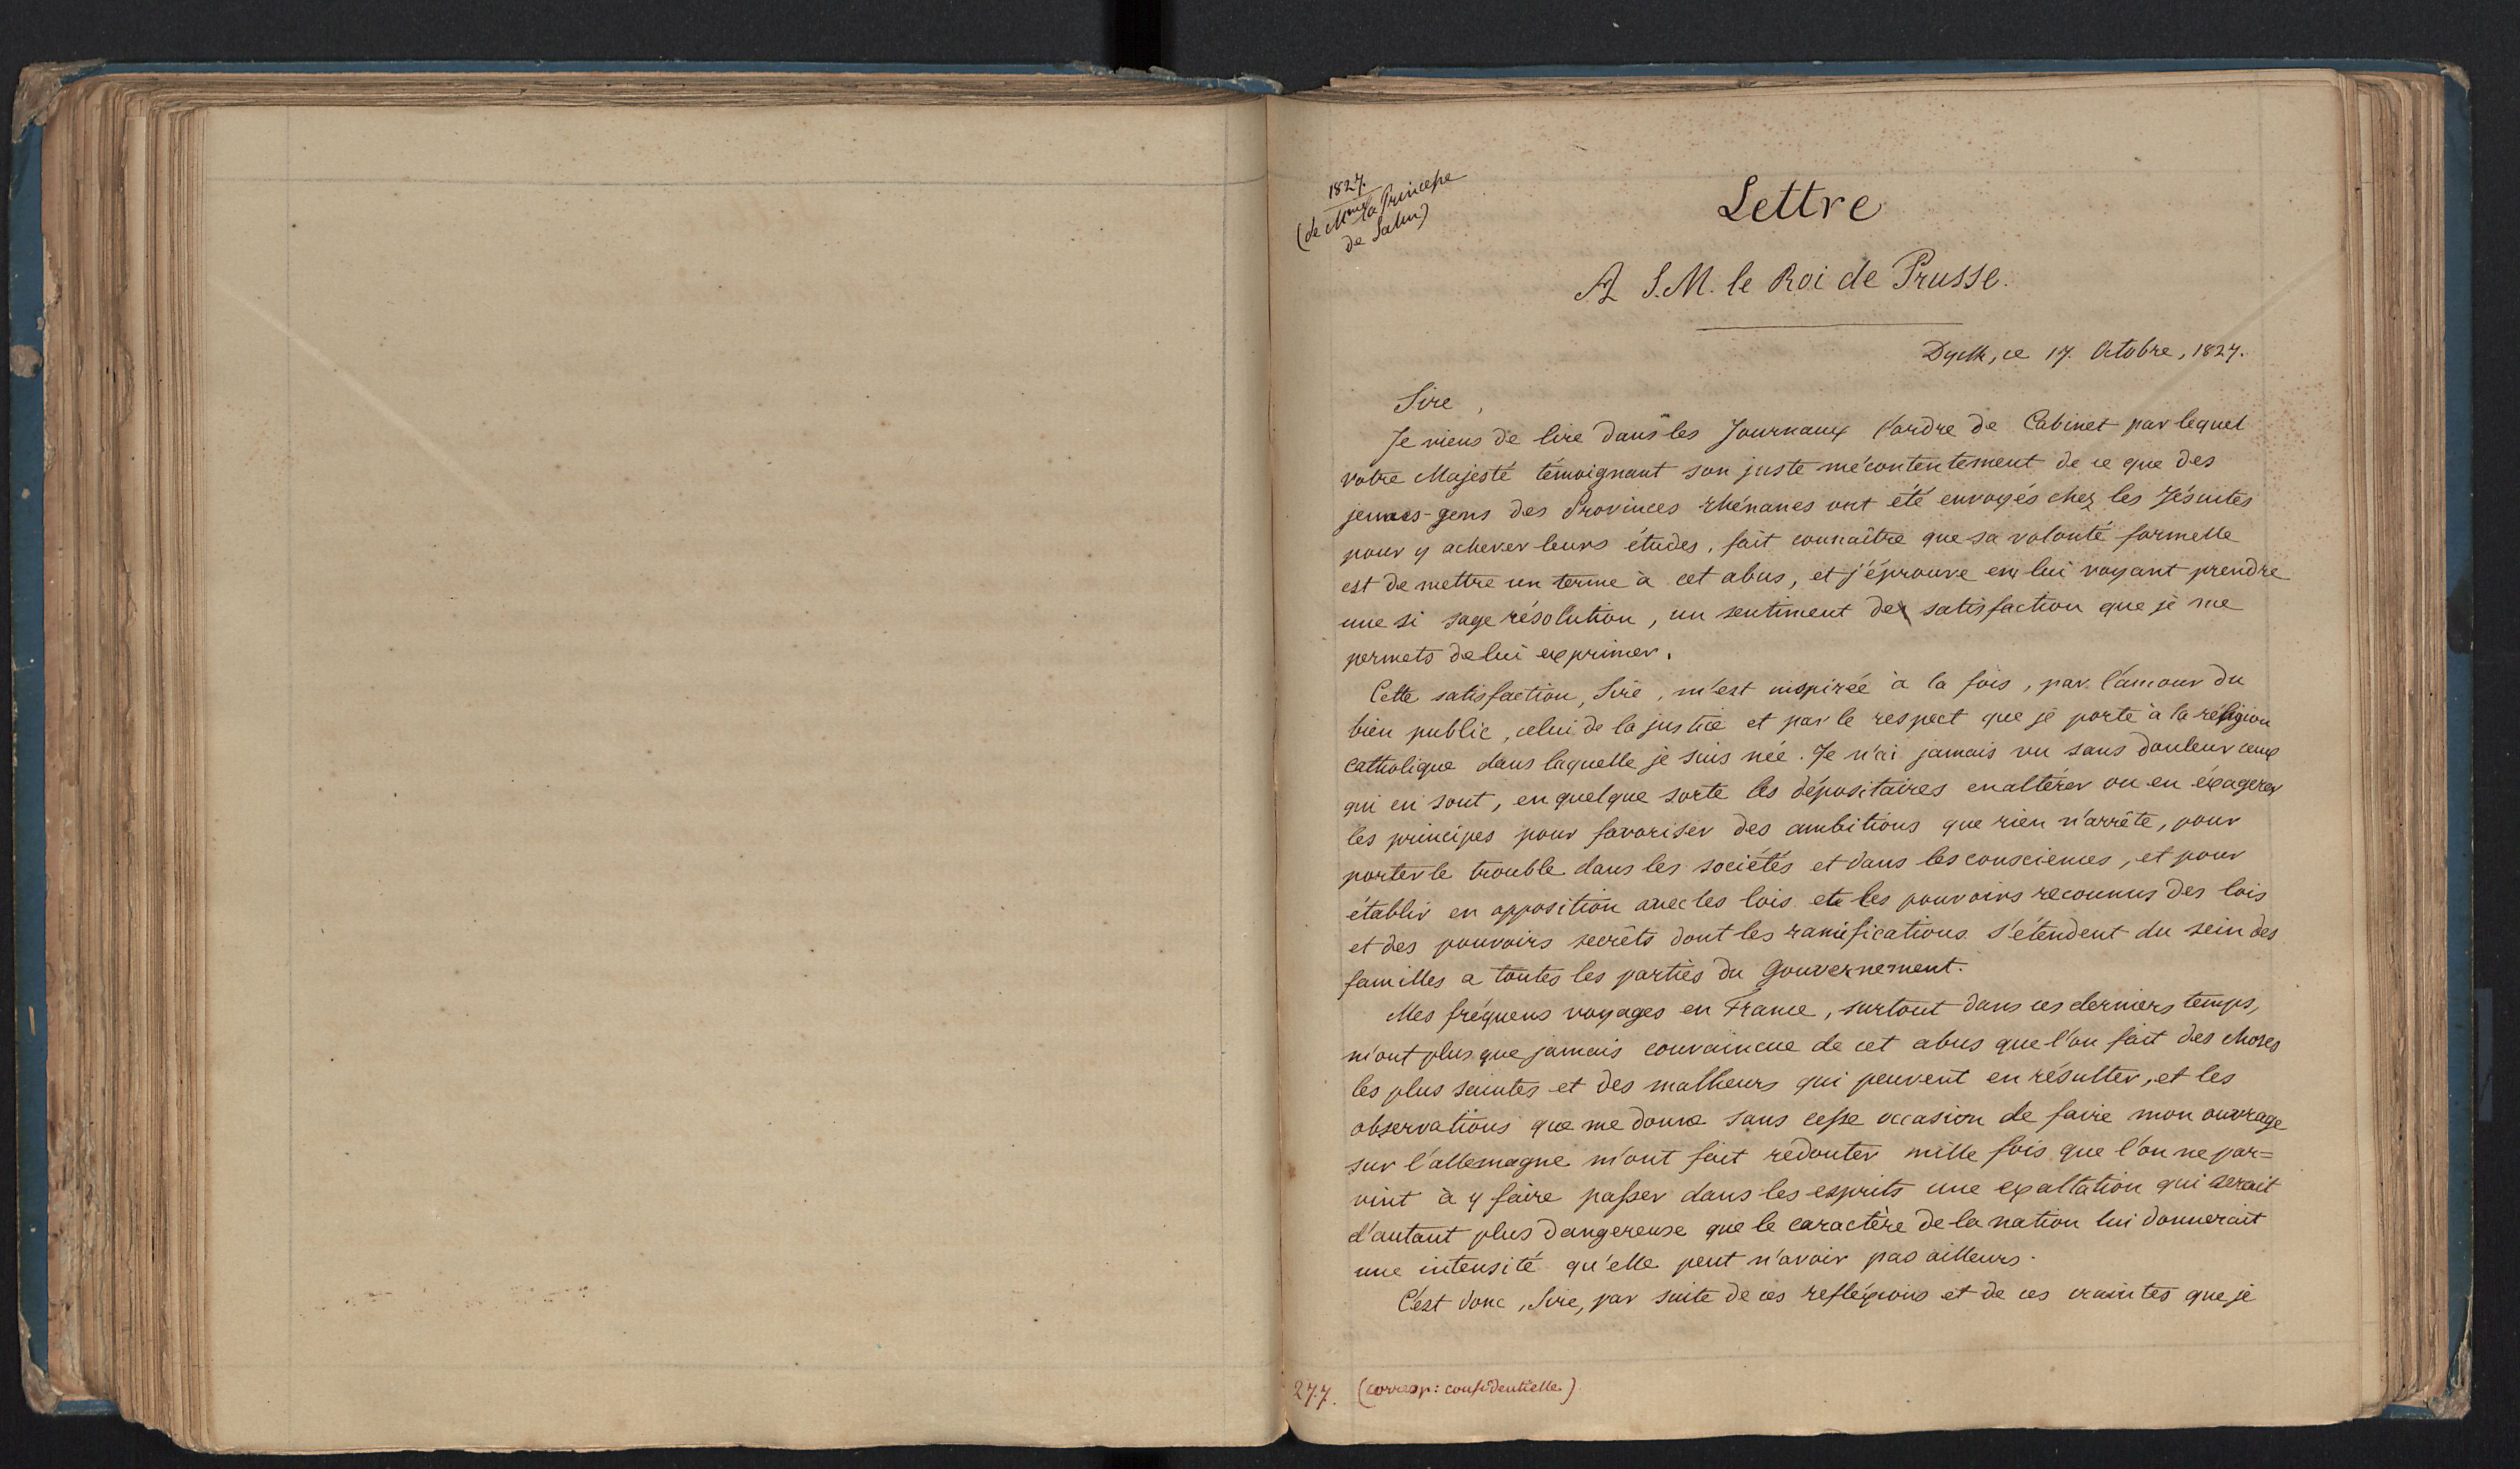 1827.
(de Mme la Princesse
de Salm)
Lettre
A S.M. le Roi de Prusse.
Dyck, ce 17. Octobre, 1827.
Sire,
Je viens de lire dans les Journaux l'ordre de Cabinet par lequel
votre Majesté témoignant son juste mécontentement de ce que des
jeunes-gens des Provinces rhénanes ont été envoyés chez les Jésuites
pour y achever leurs études, fait connaître que sa volonté formelle
est de mettre un terme à cet abus, et j'éprouve en lui voyant prendre
une si sage résolution, un sentiment de satisfaction que je me
permets de lui exprimer.
Cette satisfaction, Sire, m'est inspirée à la fois, par l'amour du
bien public, celui de la justice et par le respect que je porte à la réligion
catholique dans laquelle je suis née. Je n'ai jamais vu sans douleur ceux
qui en sont, en quelque sorte les dépositaires en altérer ou en éxagerer
les principes pour favoriser des ambitions que rien n'arrête, pour
porter le trouble dans les sociétés et dans les consciences, et pour
établir en opposition avec les lois et les pouvoirs reconnus des lois
et des pouvoirs secrêts dont les ramifications s'étendent du sein des
familles a toutes les parties du Gouvernement.
Mes fréquens voyages en France, surtout dans ces derniers temps,
m'ont plus que jamais convaincue de cet abus que l'on fait des choses
les plus saintes et des malheurs qui peuvent en résulter, et les
observations que me donne sans cesse occasion de faire mon ouvrage
sur l'allemagne m'ont fait redouter mille fois que l'on ne par=
vint à y faire passer dans les esprits une exaltation qui serait
d'autant plus dangereuse que le caractère de la nation lui donnerait
une intensité qu'elle peut n'avoir pas ailleurs.
C'est donc, Sire, par suite de ces refléxions et de ces craintes que je
277. (corresp: confidentielle)